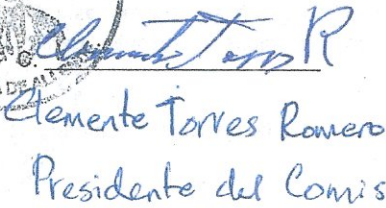 Clemente Torres R
Clemente Torres Romero
Presidente del Comis